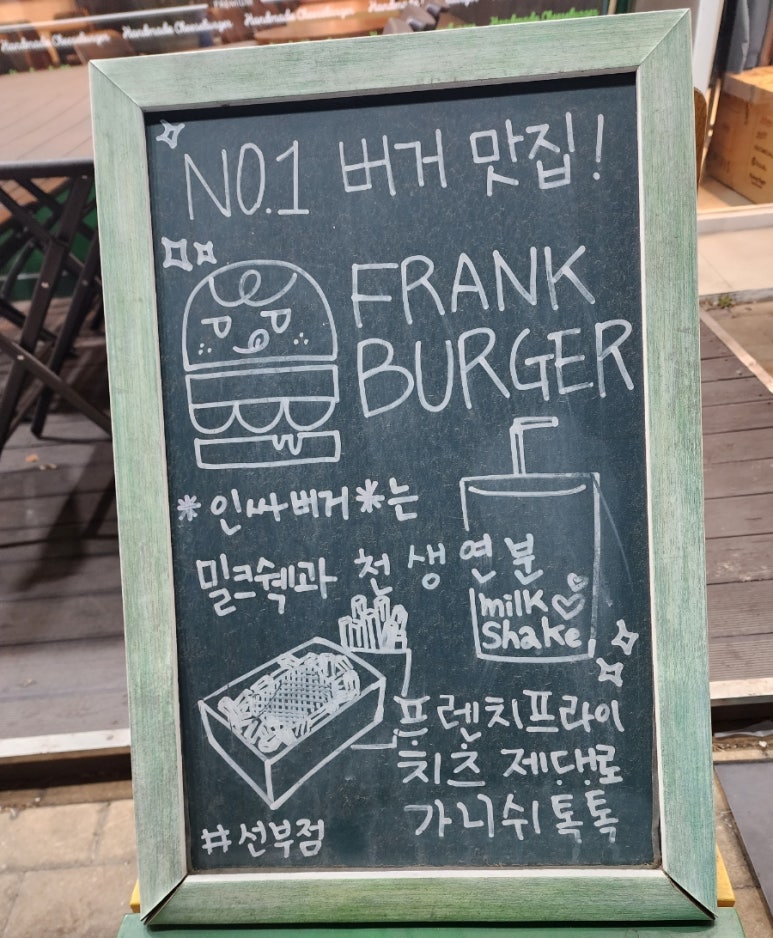 PREMIUM
Handmade Cheeseburger
Handmade Cheeseburger
Handmade Cheeseburger
NO.1 버거 맛집!
FRANK
BURGER
*인싸버거*는
밀크쉑과 천생연분
milk
Shake
프렌치프라이
치즈 제대로
가니쉬톡톡
#선부점